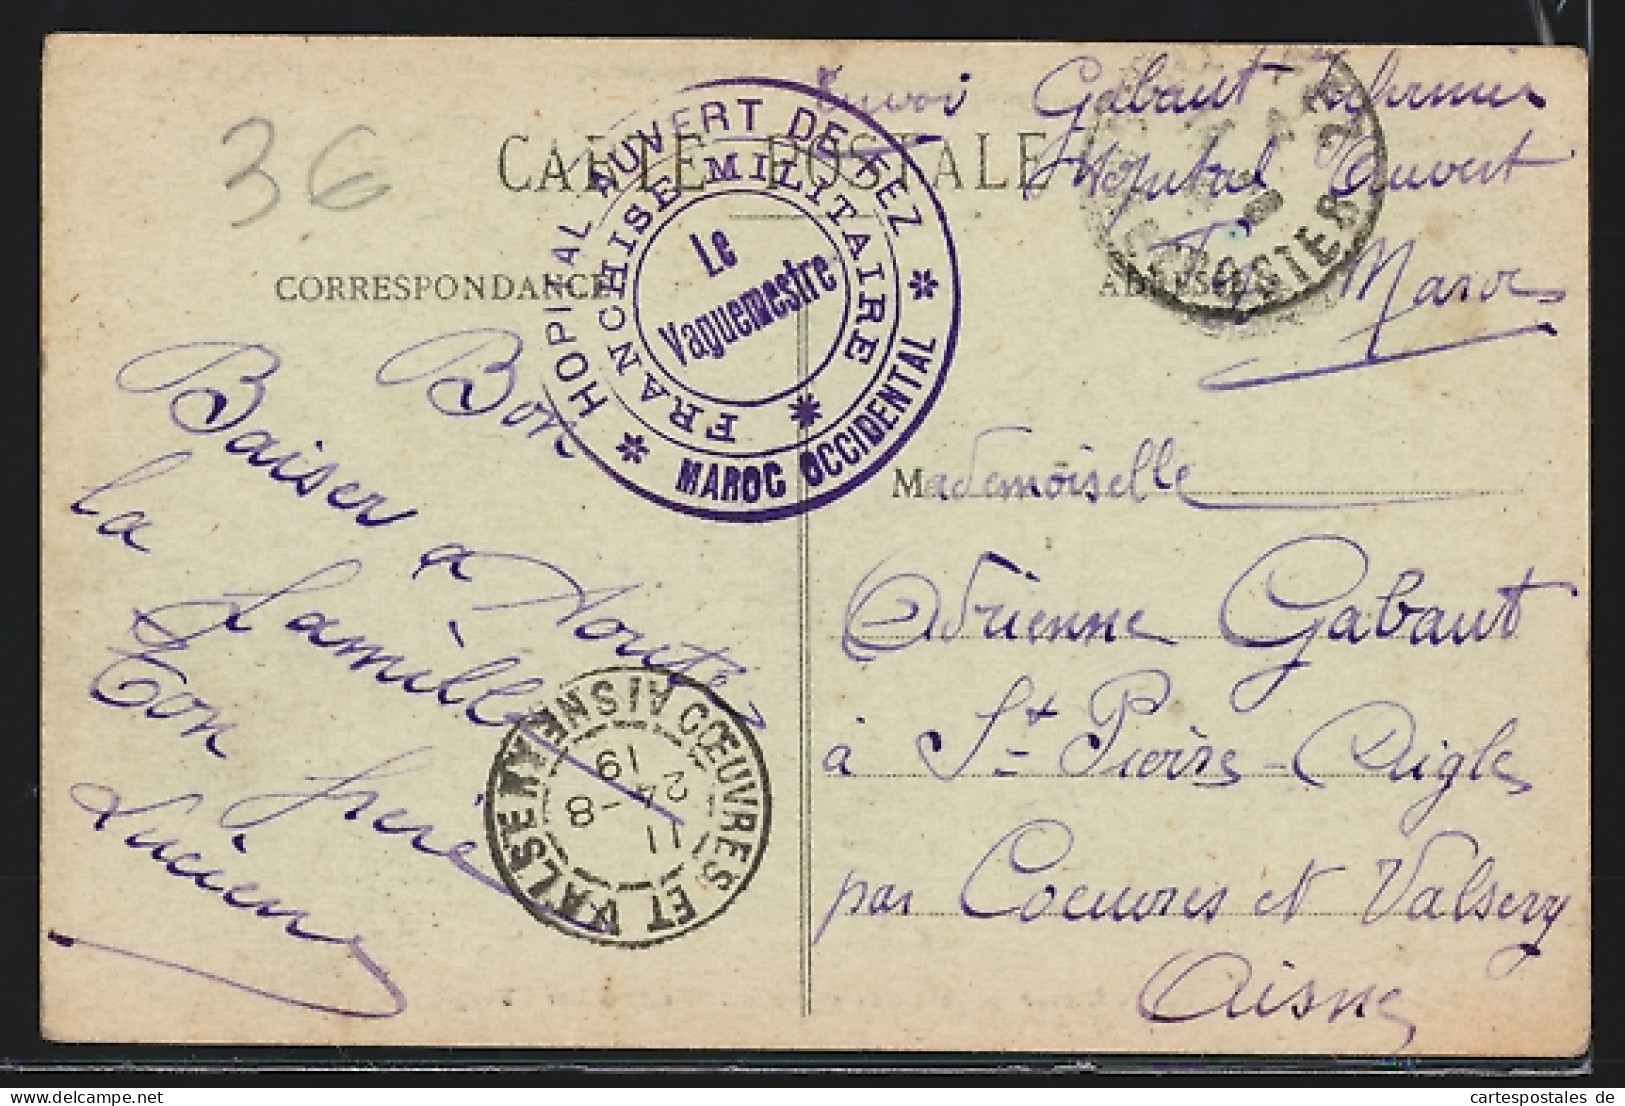 36
Envoi Gabaut Infirmier
CARTE POSTALE
Hopital Auvert
Fez Maroc
CORRESPONDANCE
ADRESSE
HOPITAL AUVERT DE FEZ
MAROC OCCIDENTAL
FRANCHISE MILITAIRE
Le
Vaguemestre
Bon
Baiser a Toute
la famille
Ton frère
Lucien
Mademoiselle
Adrienne Gabaut
à St Pierre-Aigle
par Coeuvres et Valsery
Aisne
COEUVRES ET VALSERY AISNE
11
24 -8
19
POSTES
cartespostales de